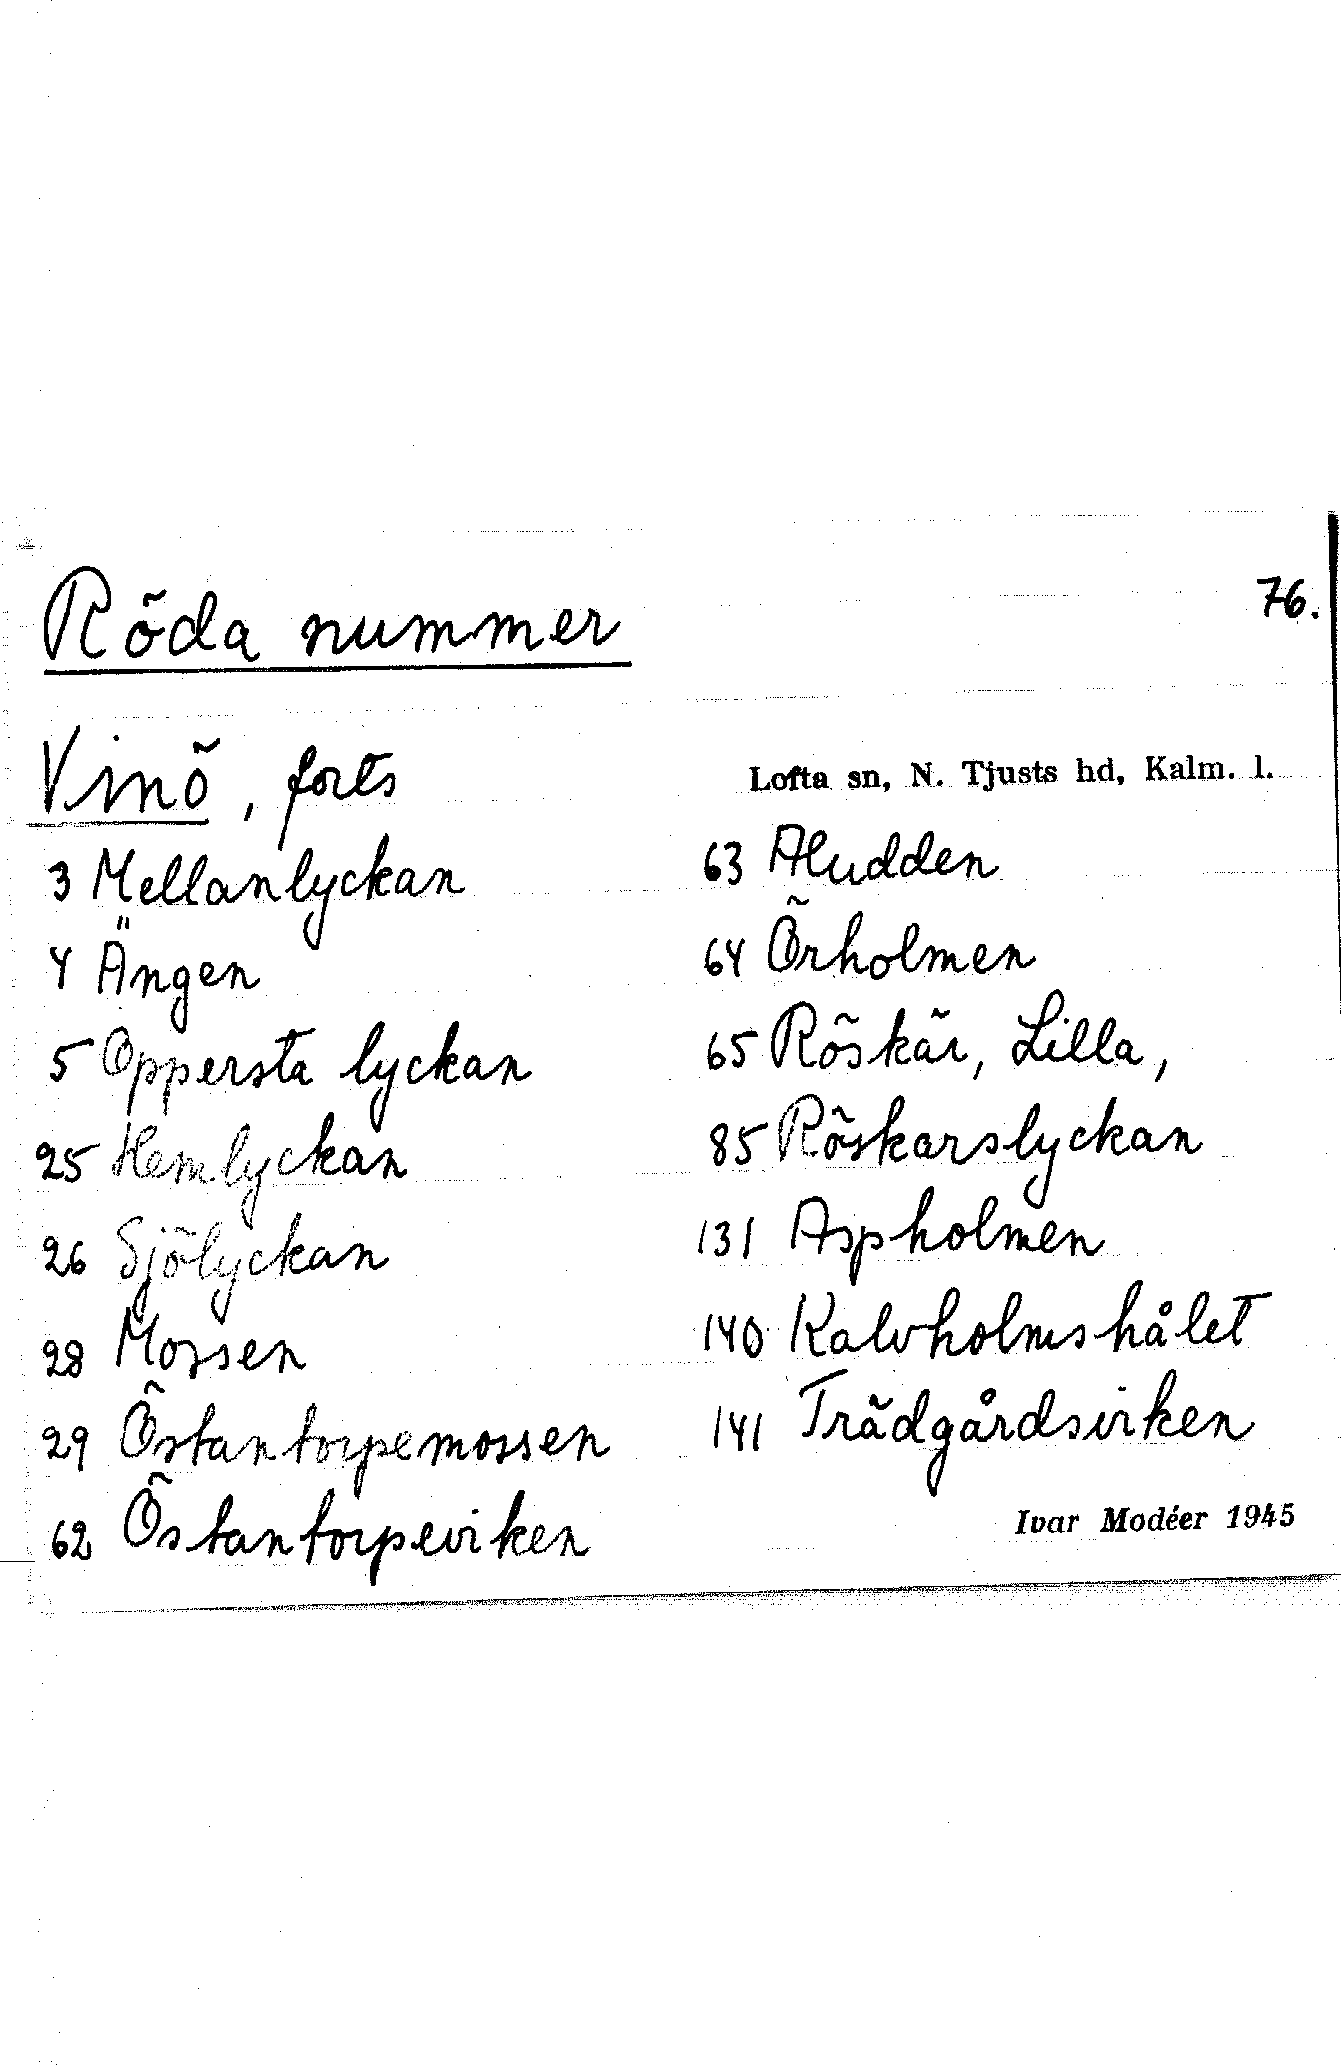 Röda nummer
76.
Vinö, forts
Lofta sn, N. Tjusts hd, Kalm. l.
3 Mellanlyckan
4 Ängen
5 Oppersta lyckan
25 Hemlyckan
26 Sjölyckan
28 Mossen
29 Östantorpemossen
62 Östantorpeviken
63 Aludden
64 Örholmen
65 Röskär, Lilla,
85 Röskarslyckan
131 Aspholmen
140 Kalvholmshålet
141 Trädgårdsviken
Ivar Modéer 1945